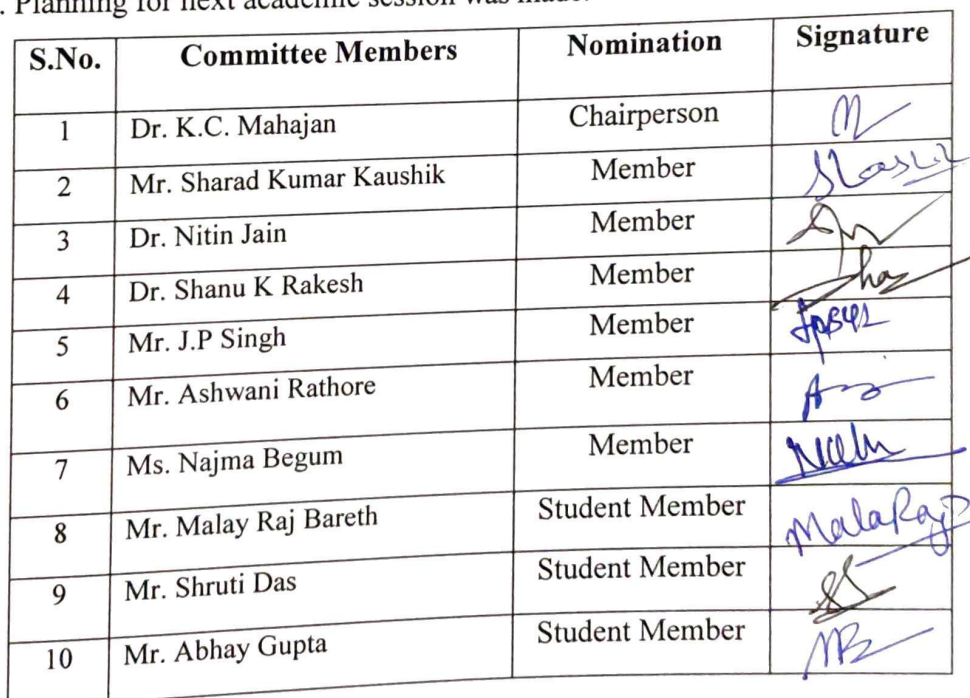 . Planning for next academic session was made.
S.No. Committee Members Nomination Signature
1 Dr. K.C. Mahajan Chairperson
2 Mr. Sharad Kumar Kaushik Member
3 Dr. Nitin Jain Member
4 Dr. Shanu K Rakesh Member
5 Mr. J.P Singh Member
6 Mr. Ashwani Rathore Member
7 Ms. Najma Begum Member
8 Mr. Malay Raj Bareth Student Member
9 Mr. Shruti Das Student Member
10 Mr. Abhay Gupta Student Member